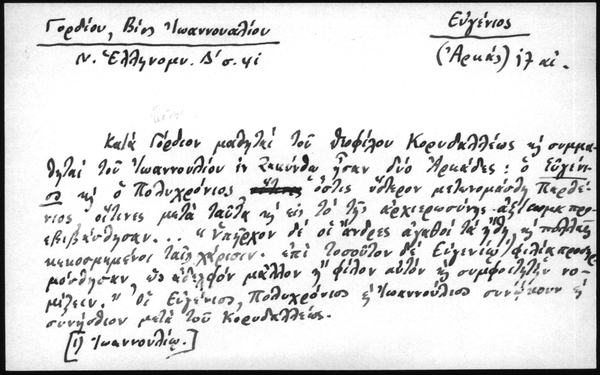 Γορδίου, Βίος Ἰωαννουλίου
Εὐγένιος
Ν. Ἑλληνομν. Δ' σ.
(Ἀρκάς) 17 αἰ.
Κατά Γόρδιον μαθηταί τοῦ Θεοφίλου Κορυδαλλέως κ συμμα-
θηταί τοῦ Ἰωαννουλίου ἐν Ζακύνθῳ ἦσαν δύο Ἀρκάδες: ὁ Εὐγένι-
ος κ ὁ Πολυχρόνιος ὅστις ὕστερον μετωνομάσθη Παρθέ-
νιος οἵτινες μετά ταῦτα κ εἰς τό τῆς ἀρχιερωσύνης ἀξίωμα προ-
εβιβάσθησαν... «Ὑπῆρχον δέ οἱ ἄνδρες ἀγαθοί τά ἤθη κ πολλαῖς
κεκοσμημένοι ταῖς χάρισιν. ἐπί τοσοῦτον δέ Εὐγενίῳ φιλίᾳ προσηρ-
μόσθησαν, ὡς ἀδελφόν μᾶλλον ἤ φίλον αὐτόν κ συμφοιτητήν νο-
μίζειν." Οἱ Εὐγένιος, Πολυχρόνιος κ Ἰωαννούλιος συνῴκουν κ
συνήσθιον μετά τοῦ Κορυδαλλέως.
[1) Ἰωαννουλίῳ.]